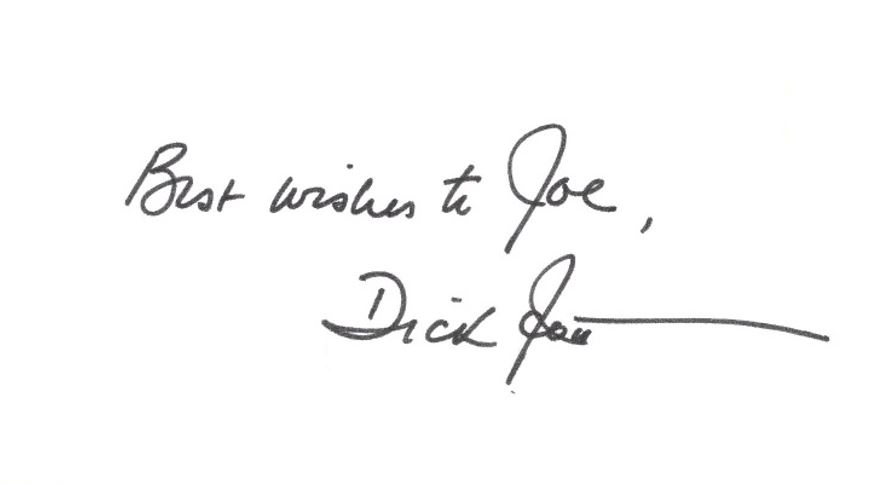 Best wishes to Joe,
Dick